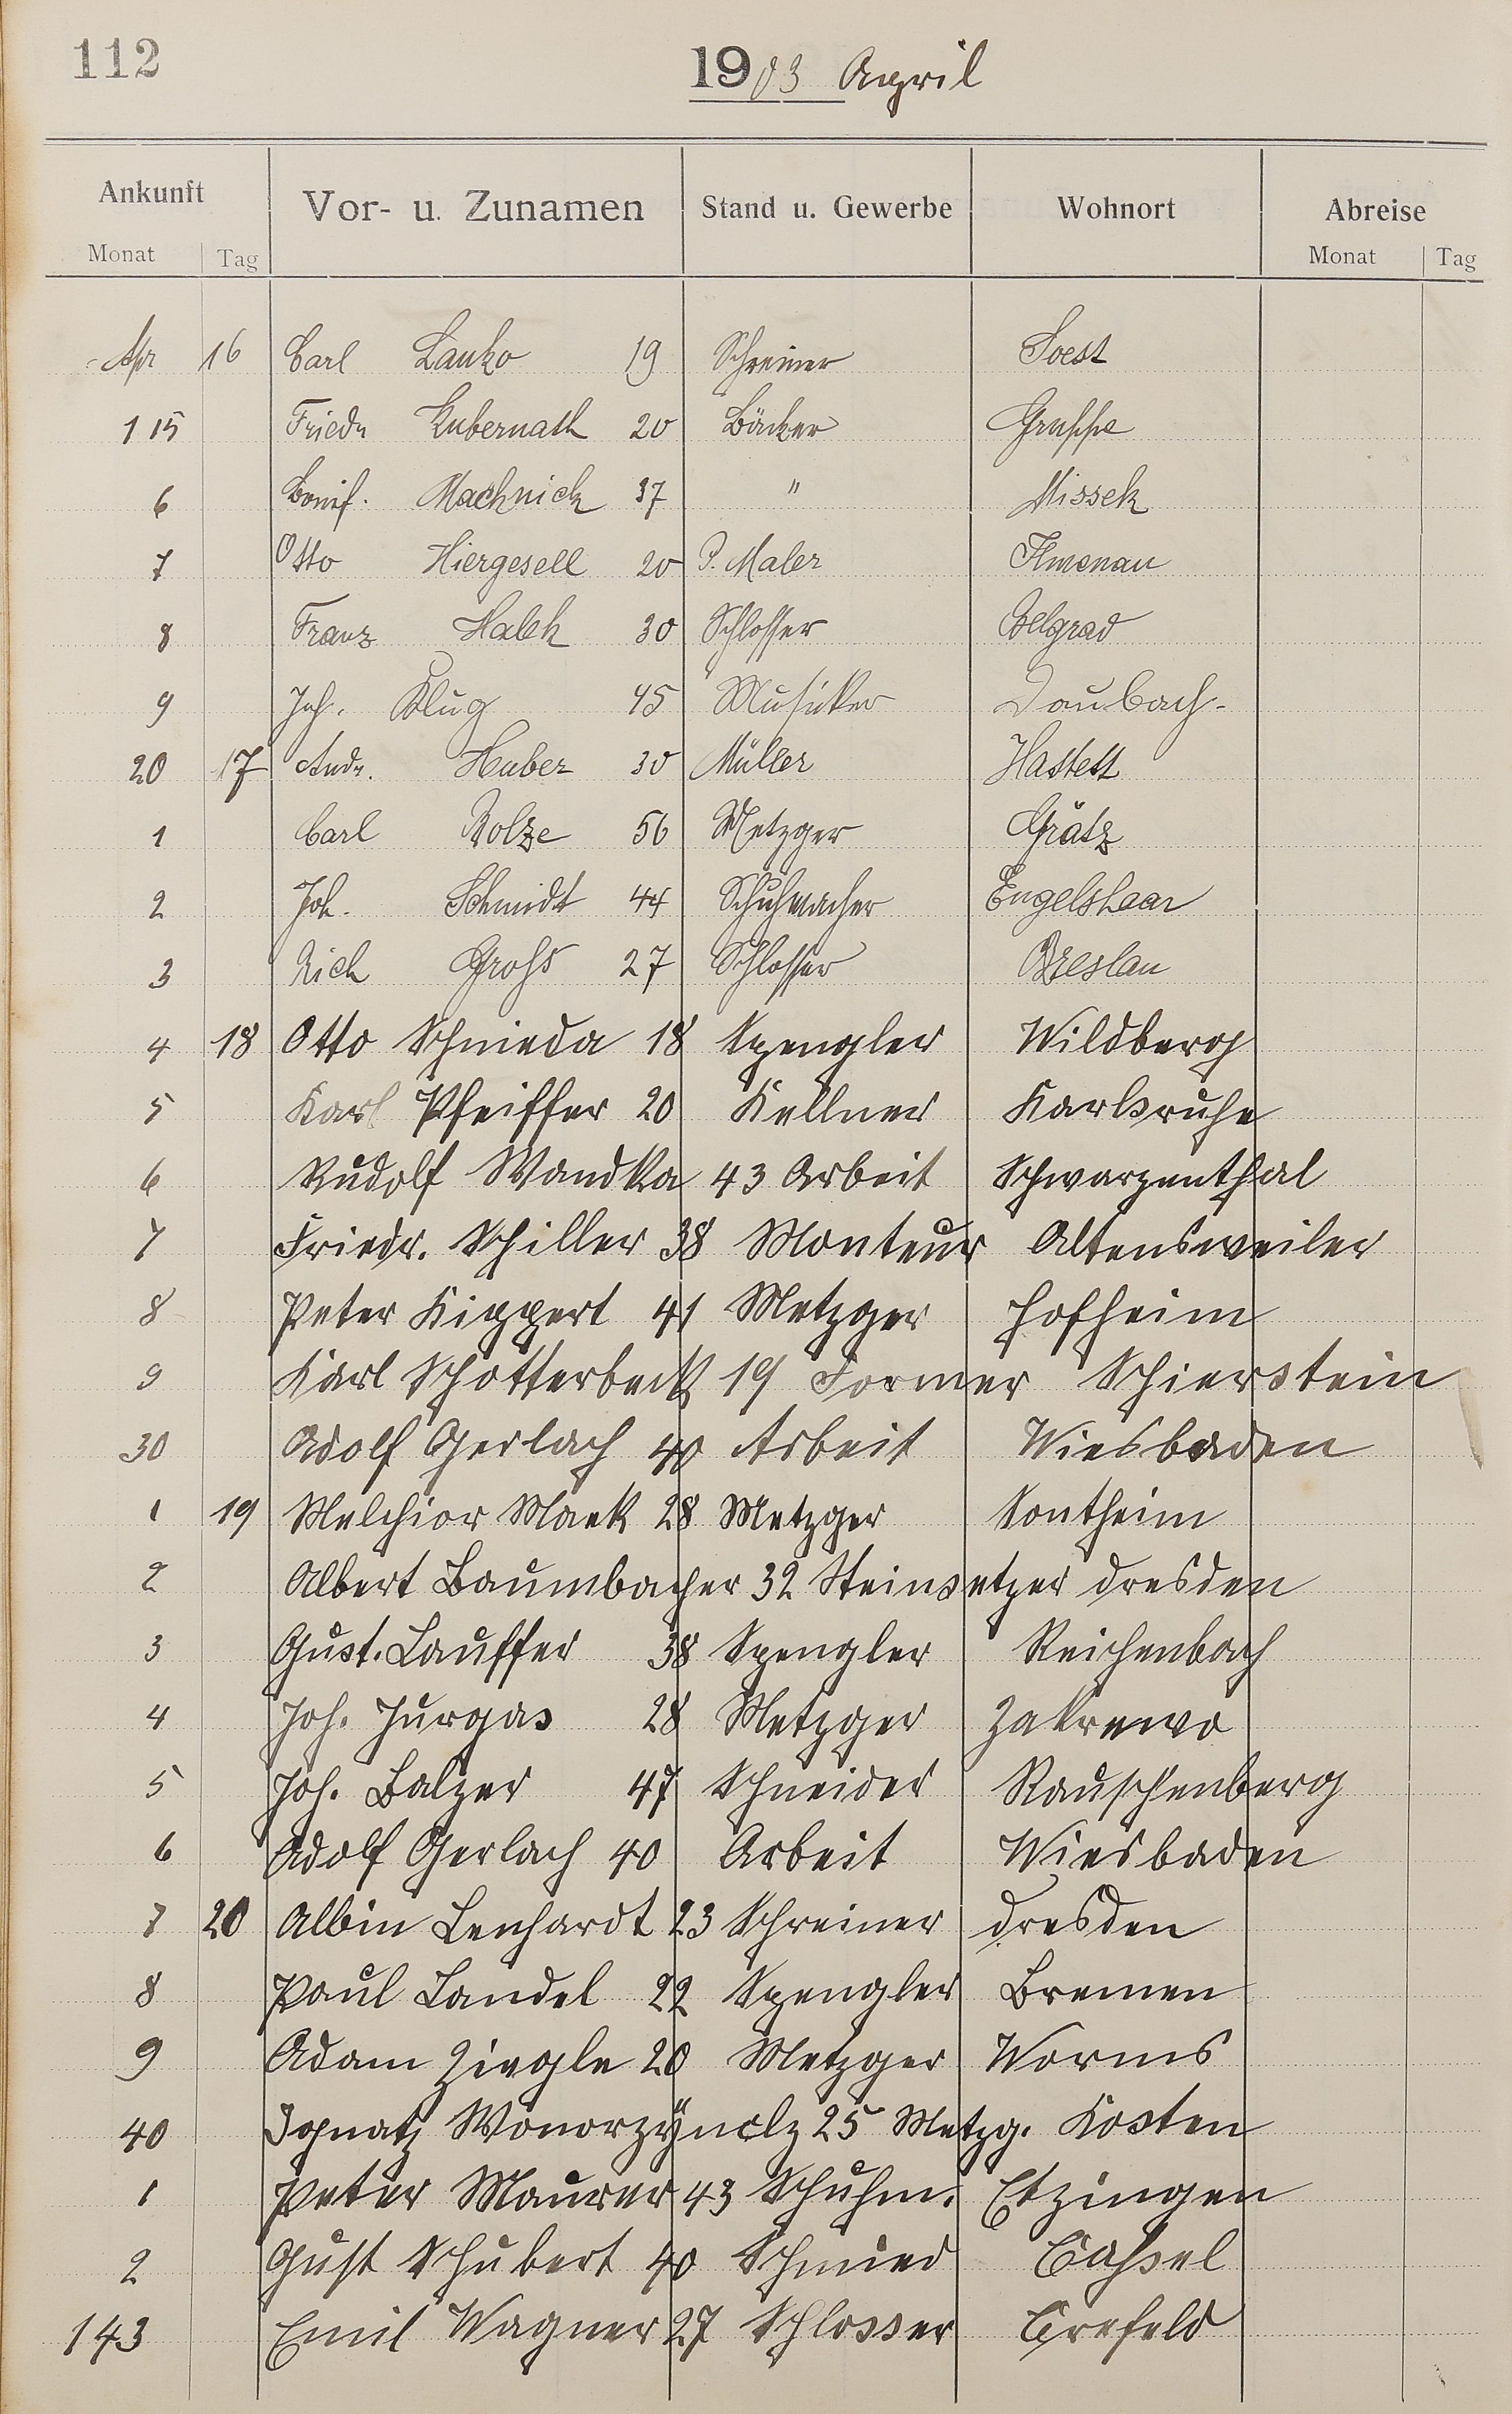 112
1903 April
Ankunft Vor- u. Zunamen Stand u. Gewerbe Wohnort Abreise
Monat Tag Monat Tag
Apr 16 Carl Lanko 19 Schreiner Soest
115 Friedr Kubernath 20 Bäcker Gruppe
6 Bonif. Machnick 37 " Missek
7 Otto Hiergesell 20 P. Maler Ilmenau
8 Franz Halek 30 Schlosser Belgrad
9 Joh. Klug 45 Musiker Daubach
20 17 Andr. Huber 30 Müller Hastett
1 Carl Bolze 56 Metzger Grätz
2 Joh. Schmidt 44 Schuhmacher Engelshaar
3 Rich Groß 27 Schlosser Breslau
4 18 Otto Schnieda 18 Spengler Wildberg
5 Karl Pfeiffer 20 Kellner Karlsruhe
6 Rudolf Wandka 43 Arbeit Schwarzenthal
7 Friedr. Schiller 38 Monteur Altensweiler
8 Peter Kippert 41 Metzger Hofheim
9 Karl Schotterbeck 19 Former Schierstein
30 Adolf Gerlach 40 Arbeit Wiesbaden
1 19 Melchior Maek 28 Metzger Sontheim
2 Albert Baumbacher 32 Steinsetzer Dresden
3 Gust. Lauffer 38 Spengler Reichenbach
4 Joh. Jurgas 28 Metzger Zakrewo
5 Joh. Balzer 47 Schneider Rauschenberg
6 Adolf Gerlach 40 Arbeit Wiesbaden
7 20 Albin Lenhardt 23 Schreiner Dresden
8 Paul Landel 22 Spengler Bremen
9 Adam Ziegle 20 Metzger Worms
40 Ignatz Wonorzÿnclz 25 Metzg. Kosten
1 Peter Maurer 43 Schuhm. Etzingen
2 Gust Schubert 40 Schmied Caßel
143 Emil Wagner 27 Schlosser Crefeld